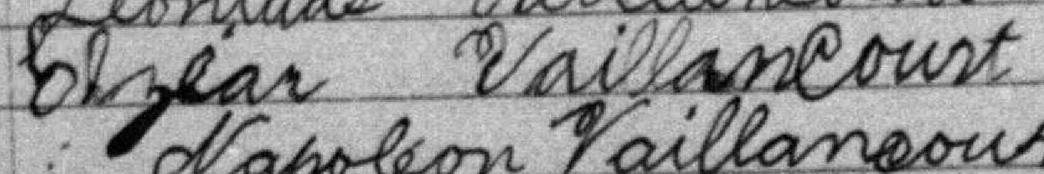 Elzéar VaillanCourt
Napoléon Vaillancour